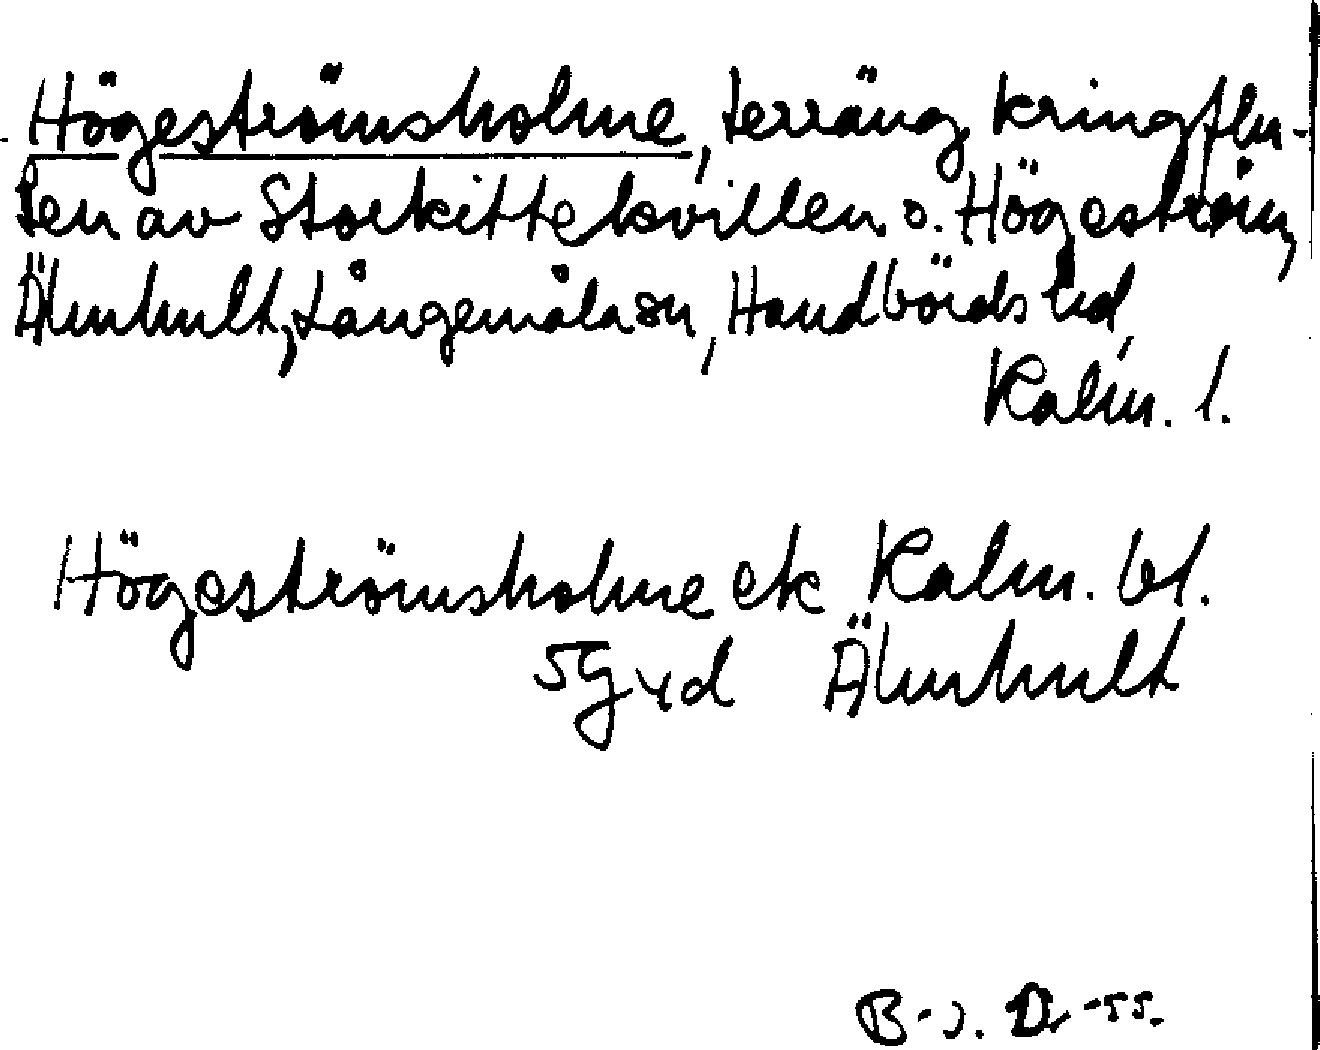 Högeströmsholme, terräng kringflu-
ten av Storkittelkvillen o. Högeström,
Älmhult, Långemåla sn, Handbörds hd,
Kalm. l.
Högeströmsholme ek Kalm. bl.
5G yd Älmhult
B-J. D. -55.